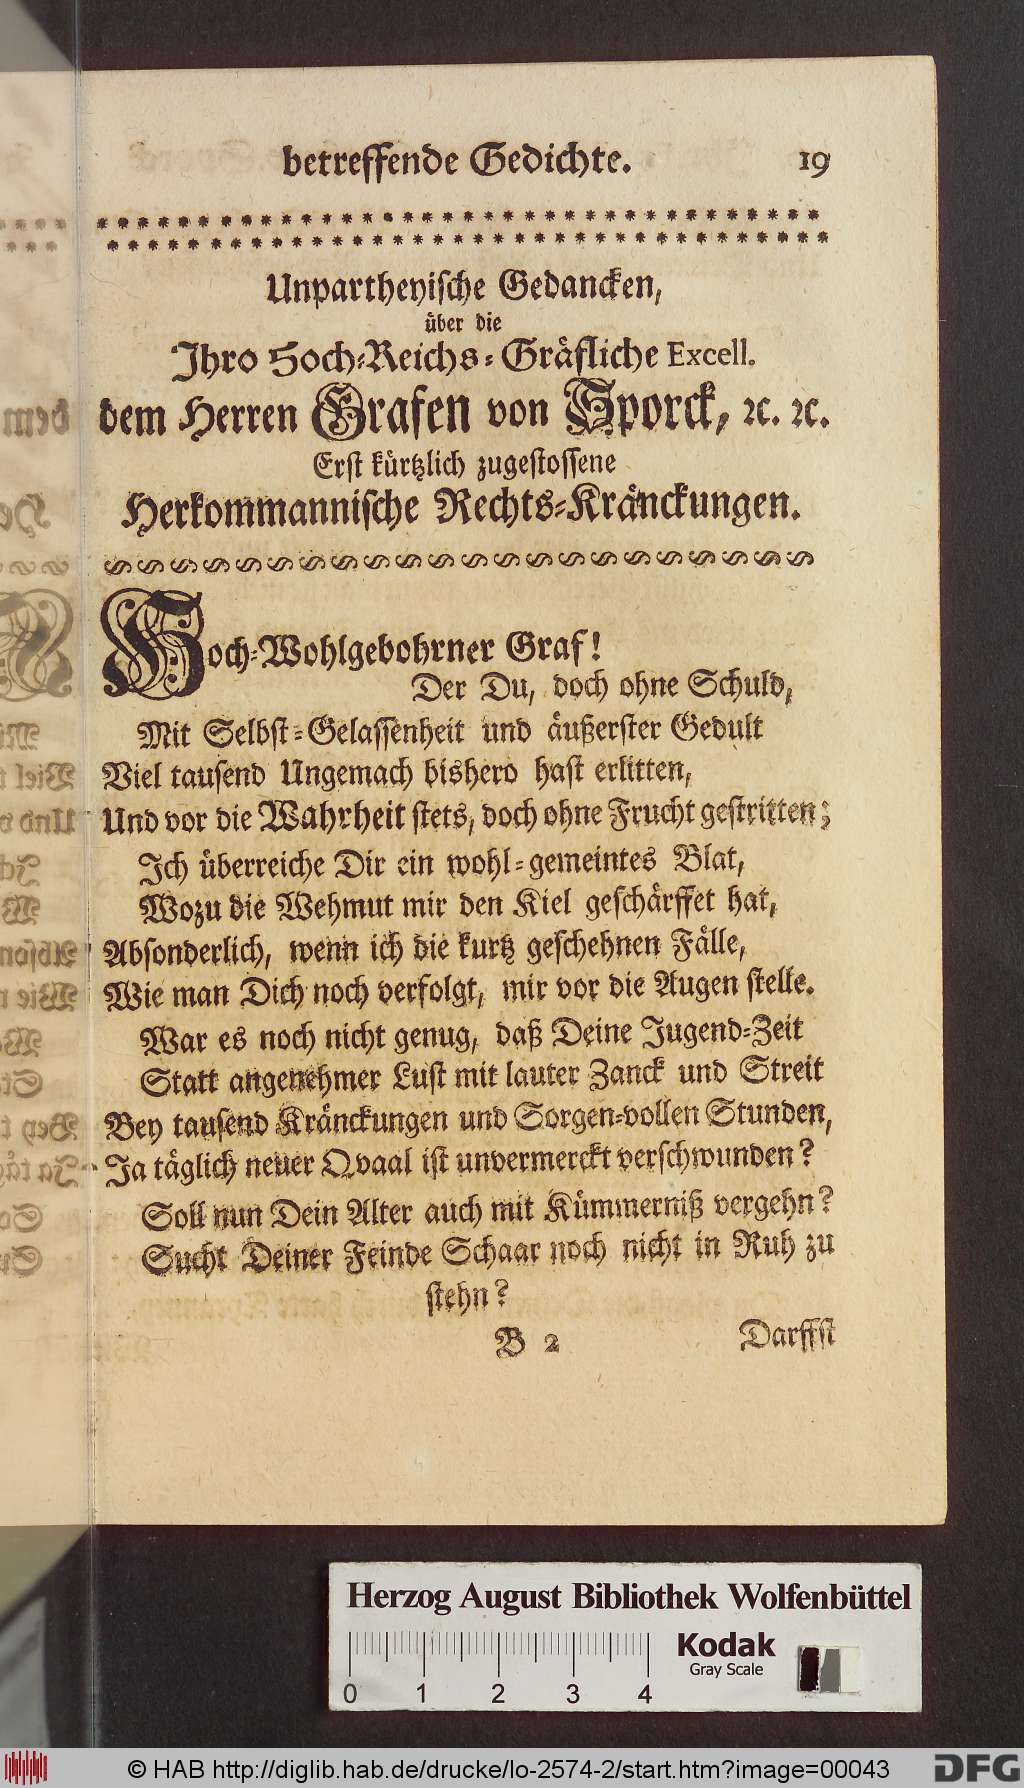 betreffende Gedichte. 19
Unpartheyische Gedancken,
über die
Ihro Hoch-Reichs-Gräfliche Excell.
dem Herren Grafen von Sporck, ꝛc. ꝛc.
Erst kürtzlich zugestossene
Herkommannische Rechts-Kränckungen.
Hoch-Wohlgebohrner Graf!
Der Du, doch ohne Schuld,
Mit Selbst-Gelassenheit und äußerster Gedult
Viel tausend Ungemach bishero hast erlitten,
Und vor die Wahrheit stets, doch ohne Frucht gestritten;
Ich überreiche Dir ein wohl-gemeintes Blat,
Wozu die Wehmut mir den Kiel geschärffet hat,
Absonderlich, wenn ich die kurtz geschehnen Fälle,
Wie man Dich noch verfolgt, mir vor die Augen stelle.
War es noch nicht genug, daß Deine Jugend-Zeit
Statt angenehmer Lust mit lauter Zanck und Streit
Bey tausend Kränckungen und Sorgen-vollen Stunden,
Ja täglich neuer Qvaal ist unvermerckt verschwunden?
Soll nun Dein Alter auch mit Kümmerniß vergehn?
Sucht Deiner Feinde Schaar noch nicht in Ruh zu
stehn?
B 2 Darffst
Herzog August Bibliothek Wolfenbüttel
Kodak
Gray Scale
0 1 2 3 4
© HAB http://diglib.hab.de/drucke/lo-2574-2/start.htm?image=00043
DFG